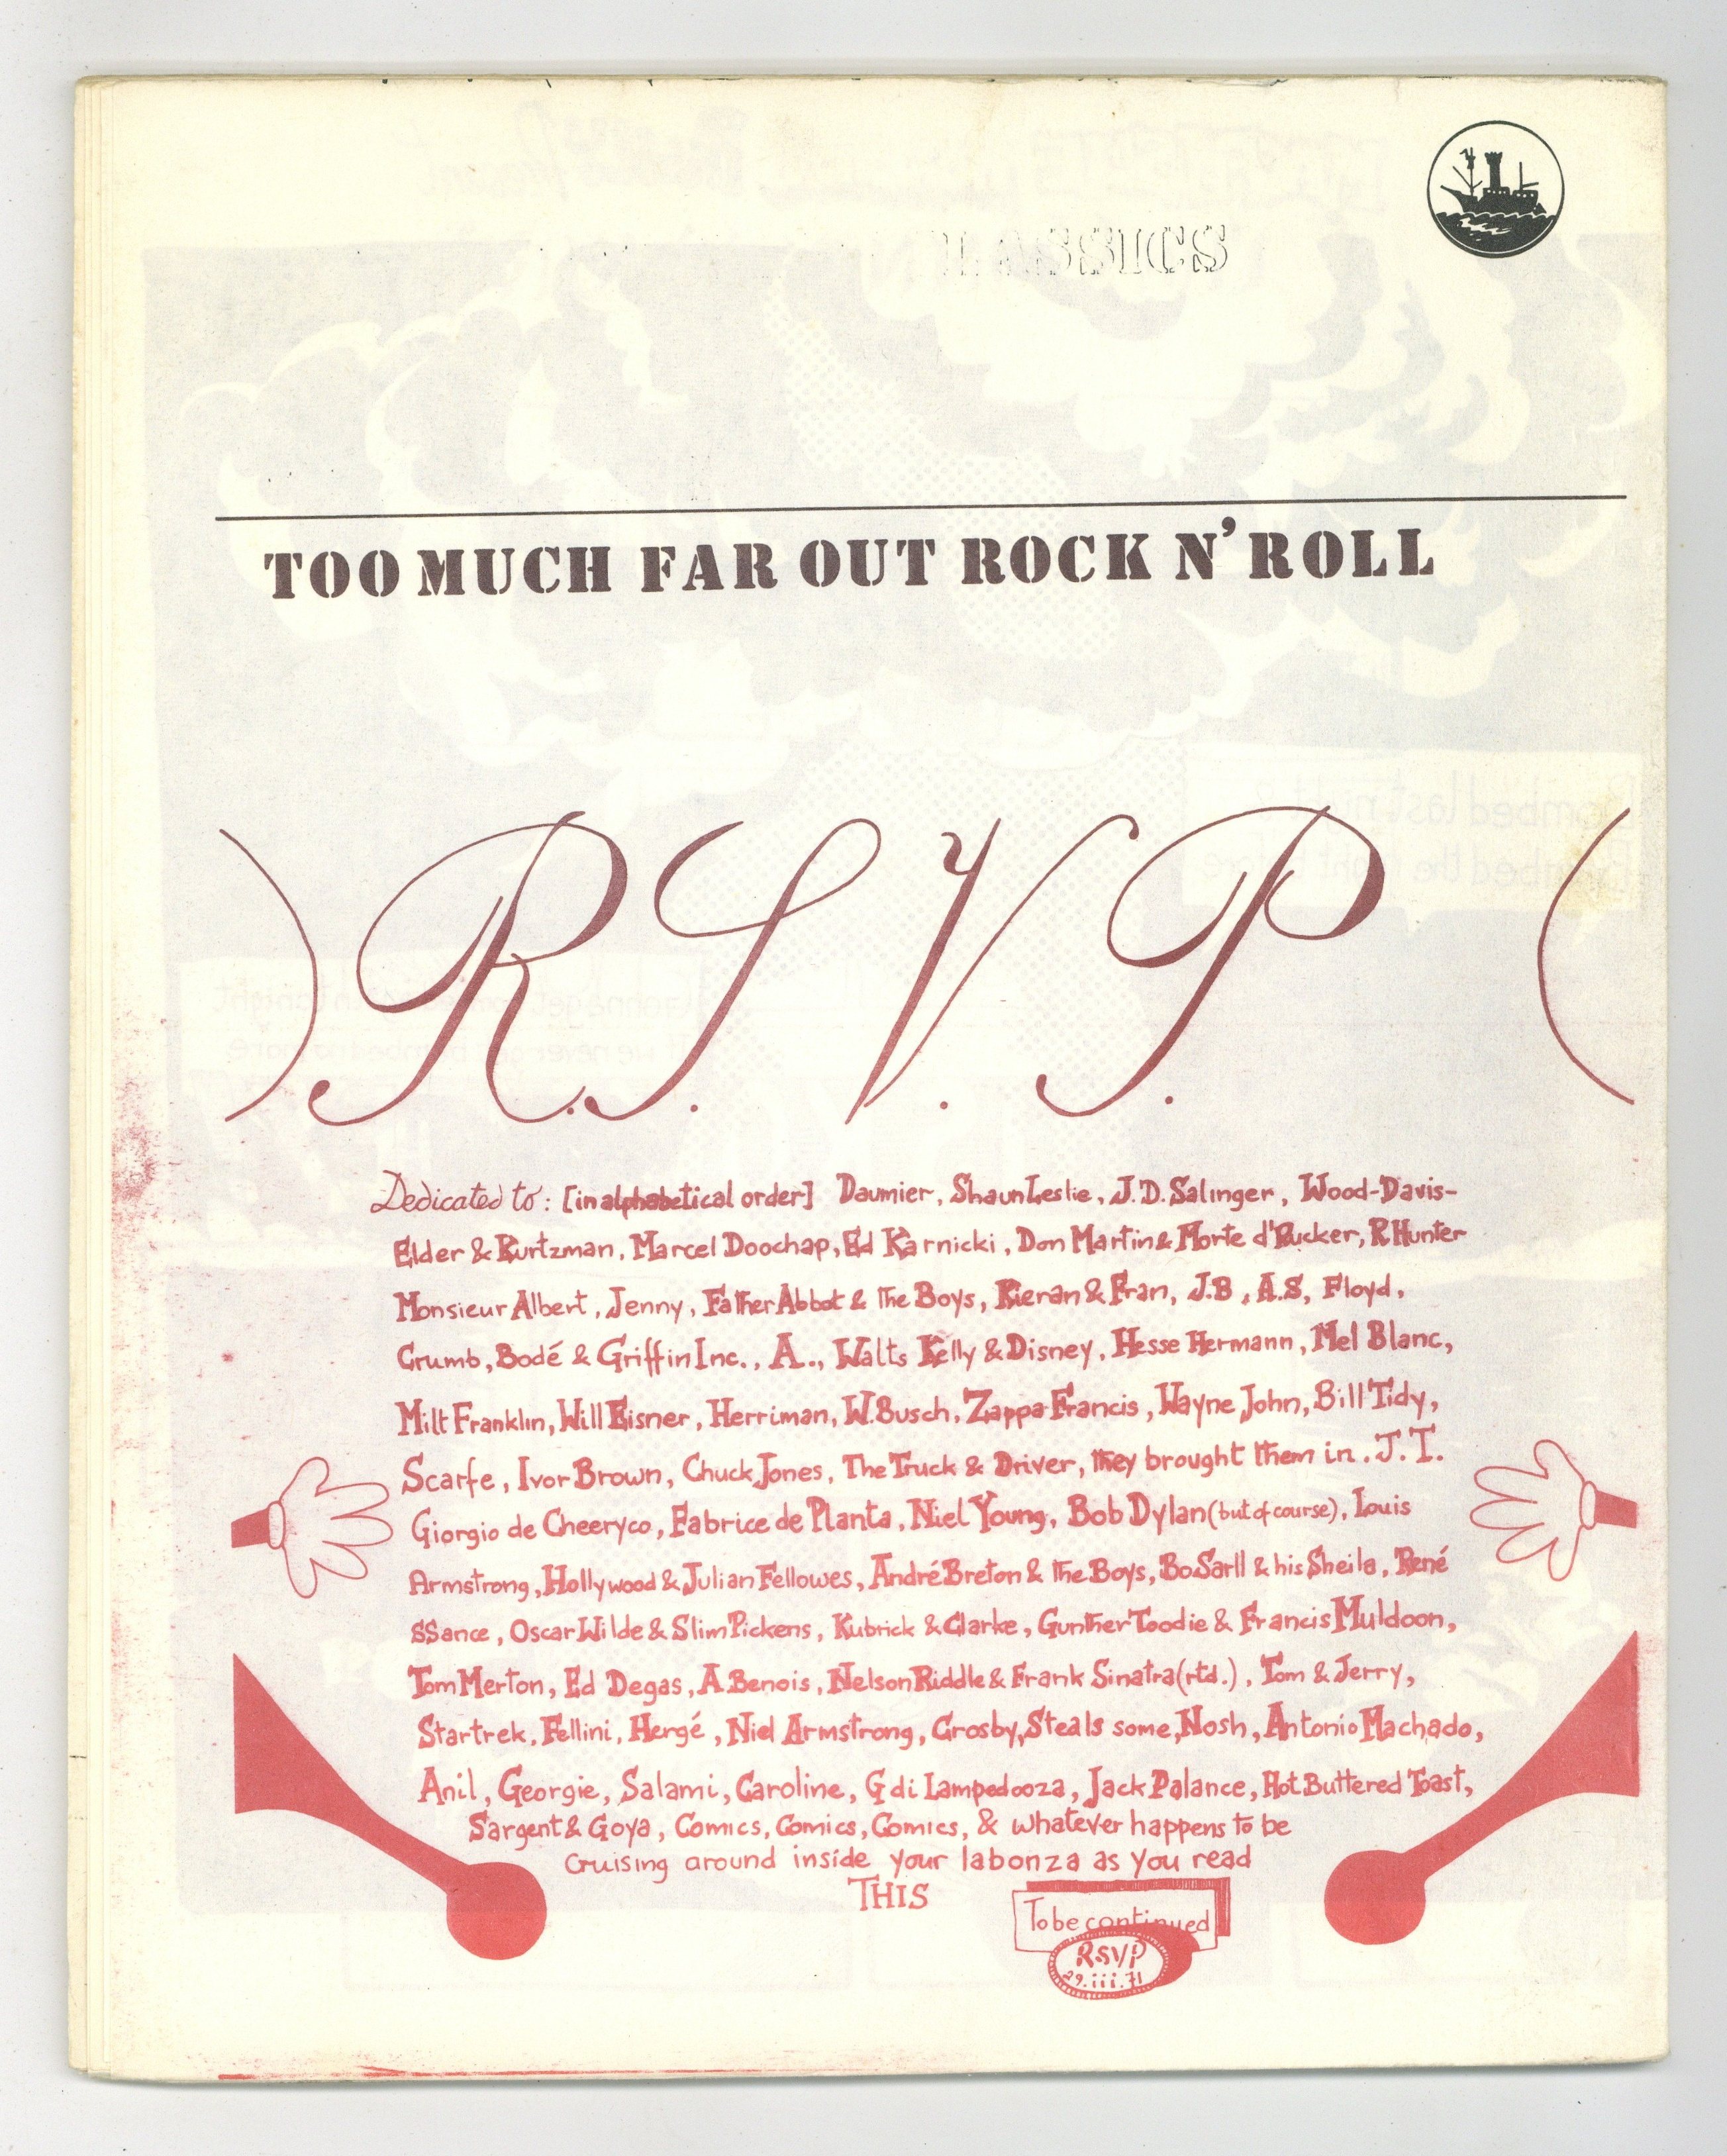 CLASSICS
TOO MUCH FAR OUT ROCK N' ROLL
) R. S. V. P. (
Dedicated to: [in alphabetical order] Daumier, Shaun Leslie, J.D. Salinger, Wood-Davis-
Elder & Kurtzman, Marcel Doochap, Ed Karnicki, Don Martin & Morte d'Rucker, R Hunter
Monsieur Albert, Jenny, Father Abbot & the Boys, Kieran & Fran, J.B, A.S, Floyd,
Crumb, Bodé & Griffin Inc., A., Walts Kelly & Disney, Hesse Hermann, Mel Blanc,
Milt Franklin, Will Eisner, Herriman, W. Busch, Zappa Francis, Wayne John, Bill Tidy,
Scarfe, Ivor Brown, Chuck Jones, The Truck & Driver, they brought them in. J.T.
Giorgio de Cheeryco, Fabrice de Planta, Niel Young, Bob Dylan (but of course), Louis
Armstrong, Hollywood & Julian Fellowes, André Breton & the Boys, Bo Sarll & his Sheila, René
SSance, Oscar Wilde & Slim Pickens, Kubrick & Clarke, Gunther Toodie & Francis Muldoon,
Tom Merton, Ed Degas, A Benois, Nelson Riddle & Frank Sinatra (rtd.), Tom & Jerry,
Startrek, Fellini, Hergé, Niel Armstrong, Crosby, Steals some, Nosh, Antonio Machado,
Anil, Georgie, Salami, Caroline, G di Lampedooza, Jack Palance, Hot Buttered Toast,
Sargent & Goya, Comics, Comics, Comics, & whatever happens to be
cruising around inside your labonza as you read
THIS
To be continued
RSVP
29.iii.71